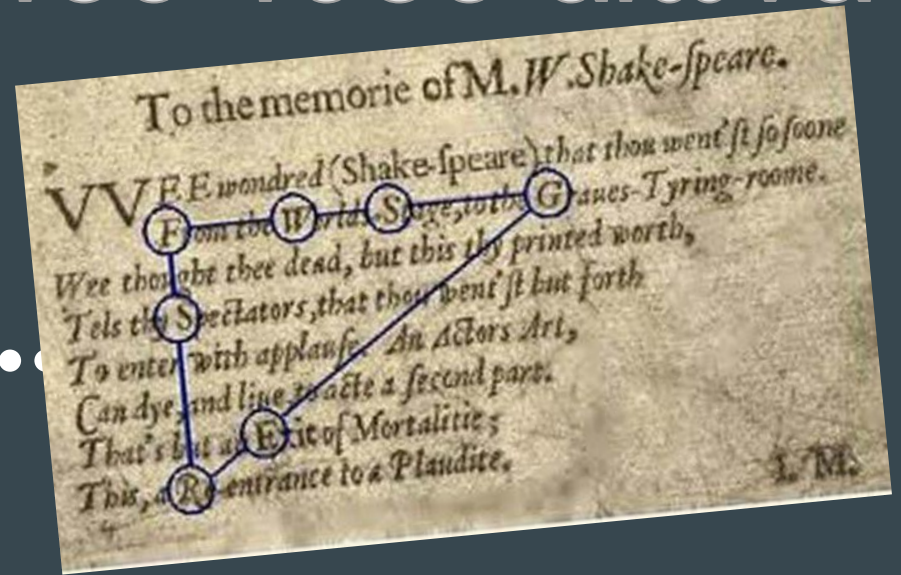 To the memorie of M. W. Shake-ſpeare.
VVEE wondred (Shake-ſpeare) that thou went'ſt ſo ſoone
From the Worlds Stage, to the Graues-Tyring-roome.
Wee thought thee dead, but this thy printed worth,
Tels thy Spectators, that thou went'ſt but forth
To enter with applauſe. An Actors Art,
Can dye, and liue, to acte a ſecond part.
That's but an Exit of Mortalitie;
This, a Re-entrance to a Plaudite.
I. M.